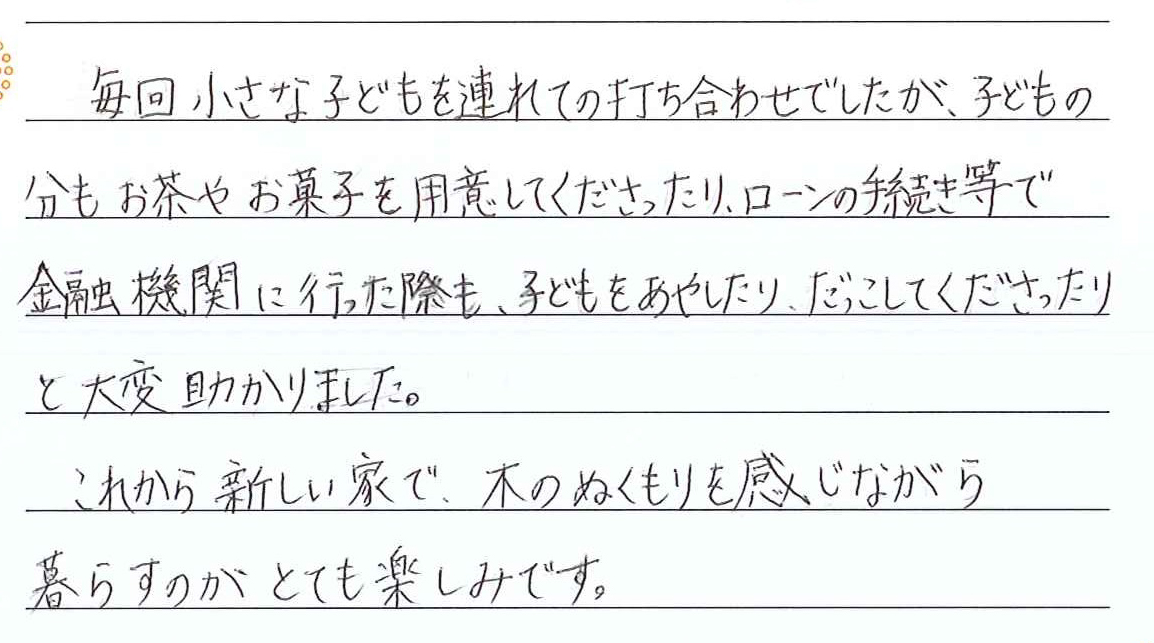 毎回小さな子どもを連れての打ち合わせでしたが、子どもの
分もお茶やお菓子を用意してくださったり、ローンの手続き等で
金融機関に行った際も、子どもをあやしたり、だっこしてくださったり
と大変助かりました。
これから新しい家で、木のぬくもりを感じながら
暮らすのがとても楽しみです。